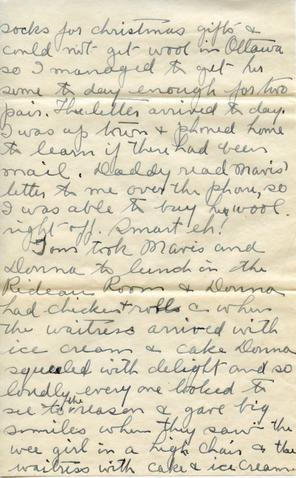 socks for christmas gifts &
could not get wool in Ottawa
so I managed to get her
some to day enough for two
pair. The letter arrived to day.
I was up town & phoned home
to learn if there had been
mail. Daddy read Mavis'
letter to me over the phone, so
I was able to buy her wool
right off. Smart eh!
Tom took Mavis and
Donna to lunch in the
Rideau Room & Donna
had chicken & rolls & when
the waitress arrived with
ice cream & cake Donna
squeeled with delight and so
loudly every one looked to
see the reason & gave big
smiles when they saw the
wee girl in a high chair & the
waitress with cake & ice cream.